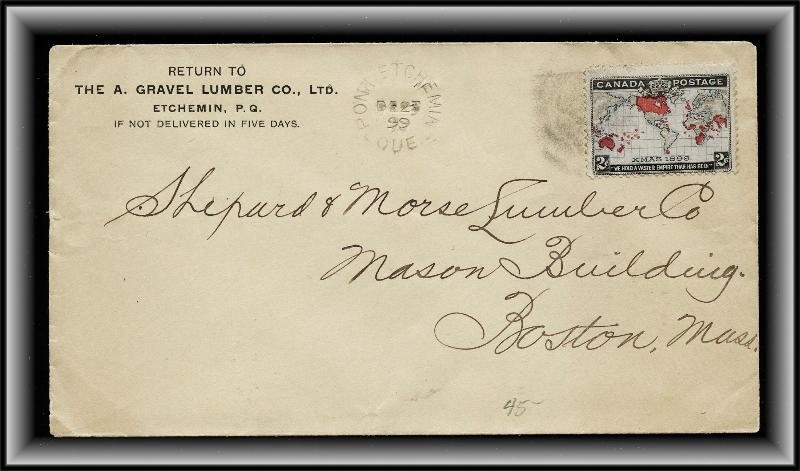 RETURN TO
THE A. GRAVEL LUMBER CO., LTD.
ETCHEMIN, P.Q.
IF NOT DELIVERED IN FIVE DAYS.
PONT ETCHEMIN
DE 23
99
QUE
CANADA POSTAGE
XMAS 1898
2 2
"WE HOLD A VASTER EMPIRE THAN HAS BEEN"
Shepard & Morse Lumber Co
Mason Building.
Boston, Mass.
45-